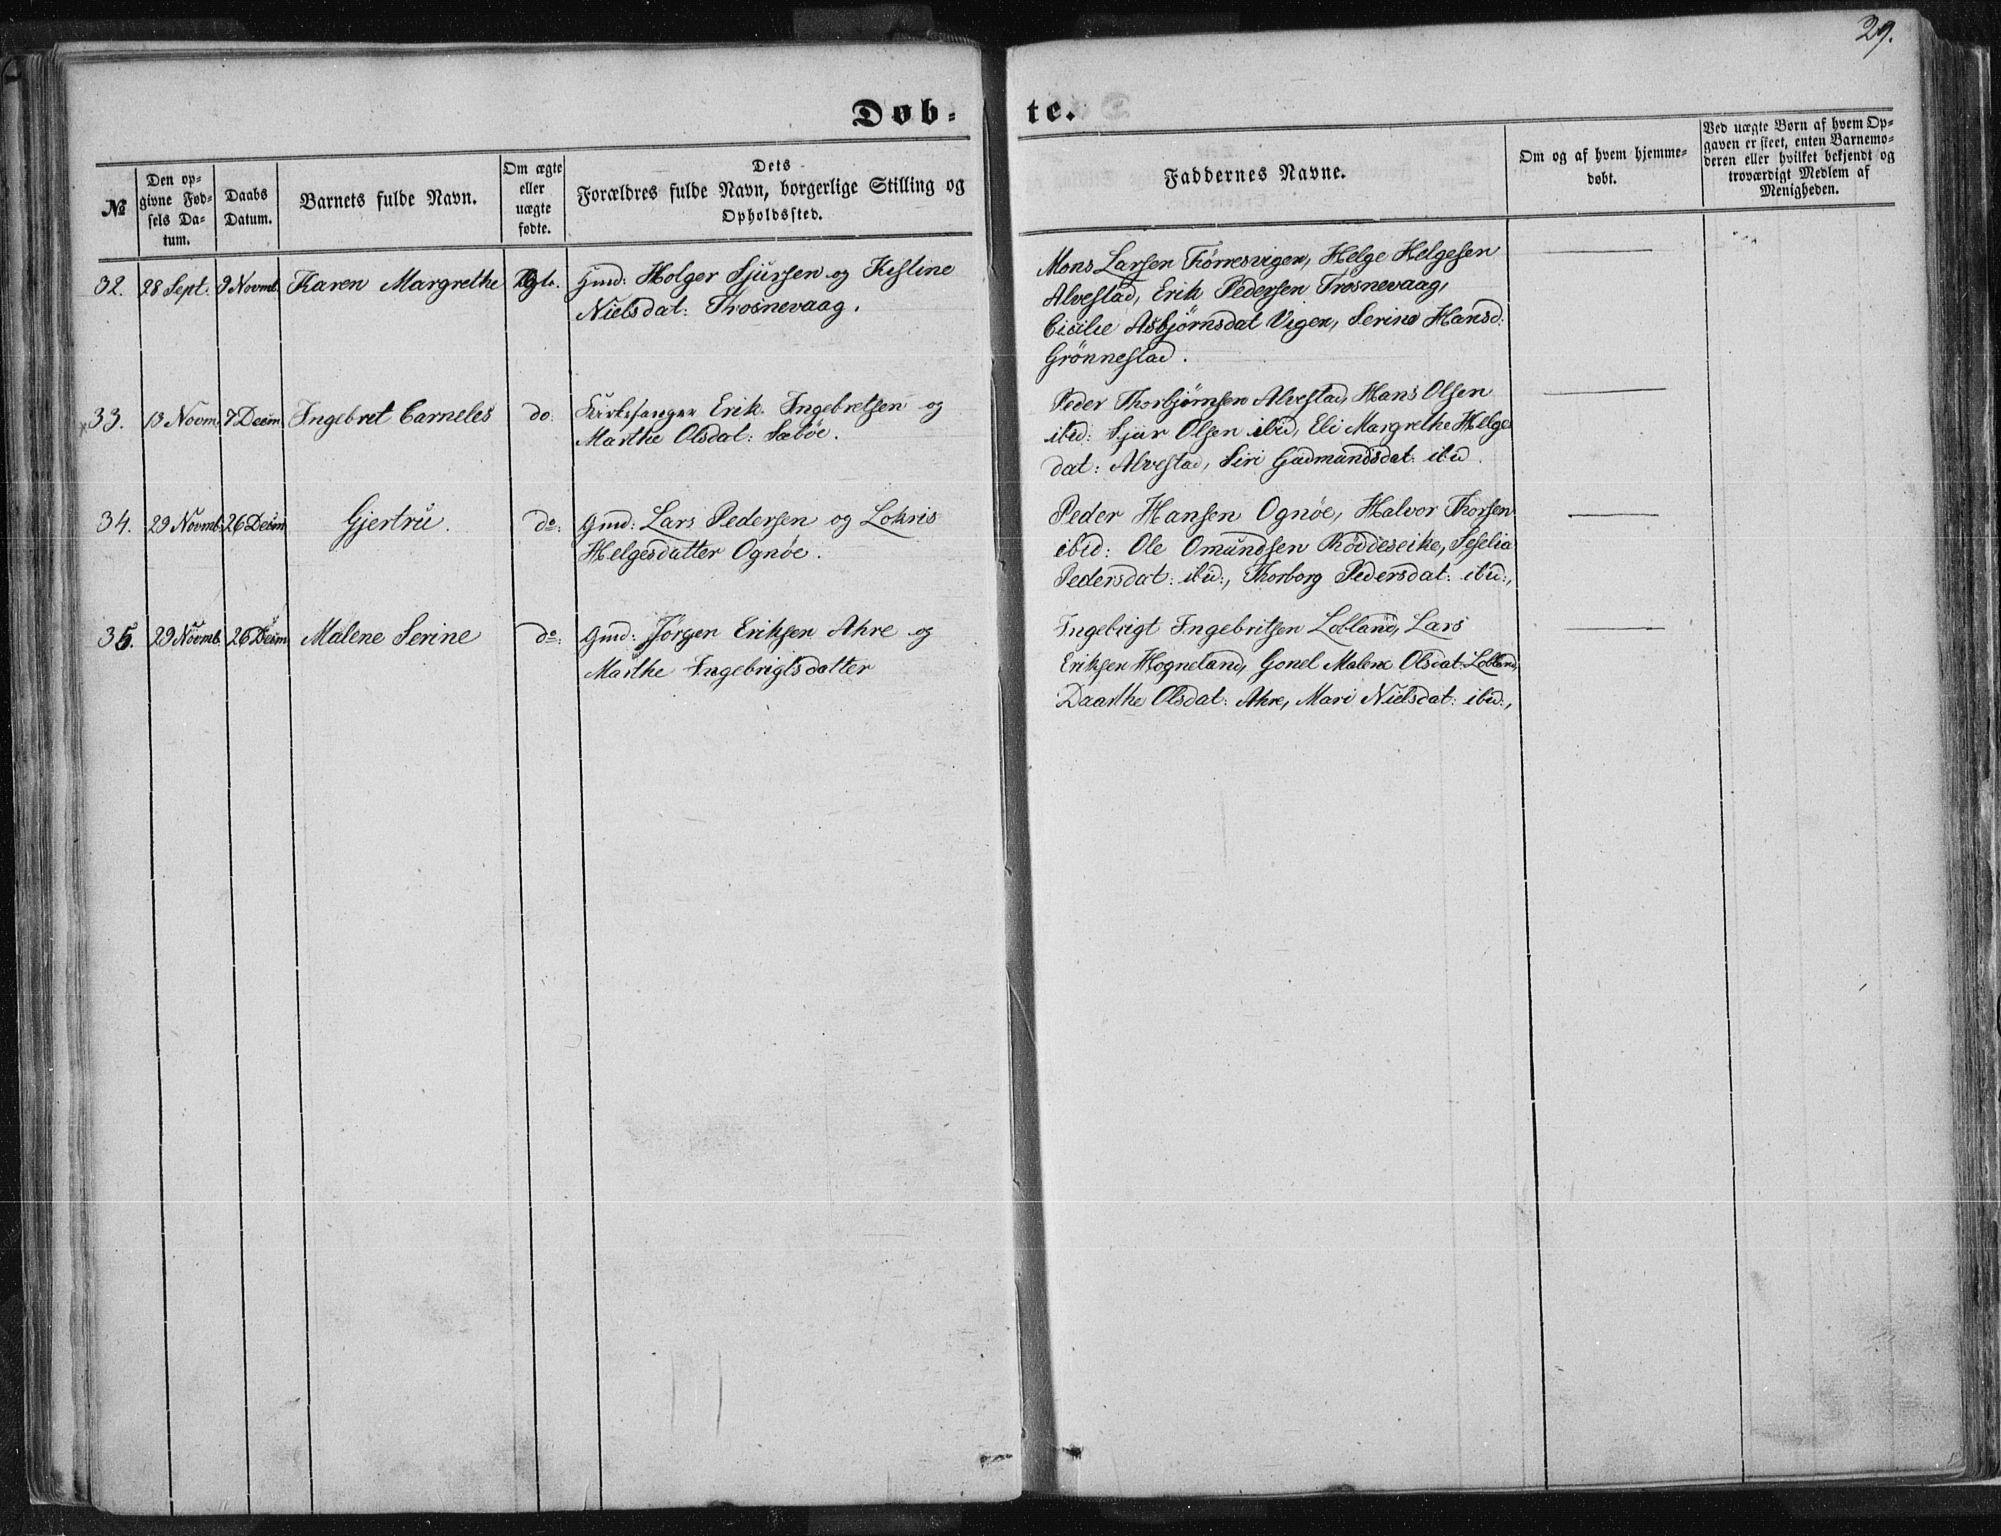 29.
Døb-
te.
№
Den op-
givne Fød-
sels Da-
tum.
Daabs
Datum.
Barnets fulde Navn.
Om ægte
eller
uægte
fødte.
Dets
Forældres fulde Navn, borgerlige Stilling og
Opholdssted.
Faddernes Navne.
Om og af hvem hjemme-
døbt.
Ved uægte Børn af hvem Op-
gaven er skeet, enten Barnemo-
deren eller hvilket bekjendt og
troværdigt Medlem af
Menigheden.
32. 28 Sept. 9 Novmb. Karen Margrethe Ægte. Gmd: Holger Sjursen og Kistine
Nielsdat: Trosnevaag.
Mons Larsen Førresvigen, Helge Helgesen
Alvestad, Erik Pedersen Trosnevaag,
Cicilie Asbjørnsdat Vigen, Serine Hansd:
Grönnestad.
33. 13 Novm. 7 Decm. Ingebret Carneles do. Kirkesanger Erik Ingebretsen og
Marthe Olsdat: Sæbøe.
Peder Thorbjørnsen Alvestad, Hans Olsen
ibid: Sjur Olsen ibid, Eli Margrethe Helge
dat: Alvestad, Siri Gudmundsdat: ibid.
34. 29 Novmb. 26 Decm Gjertru. do: Gmd: Lars Pedersen og Lokris
Helgesdatter Ognøe.
Peder Hansen Ognöe, Halvor Thorsen
ibid: Ole Omundsen Röddeseike, Seselia
Pedersdat: ibid:, Thorborg Pedersdat: ibid:,
35. 29 Novmb. 26 Decm Malene Serine do: Gmd: Jörgen Eriksen Ahre og
Marthe Ingebrigtsdatter
Ingebrigt Ingebritsen Lobland, Lars
Eriksen Hogneland, Gonel Malene Olsdat: Lobland,
Daarthe Olsdat: Ahre, Mari Nielsdat: ibid:,